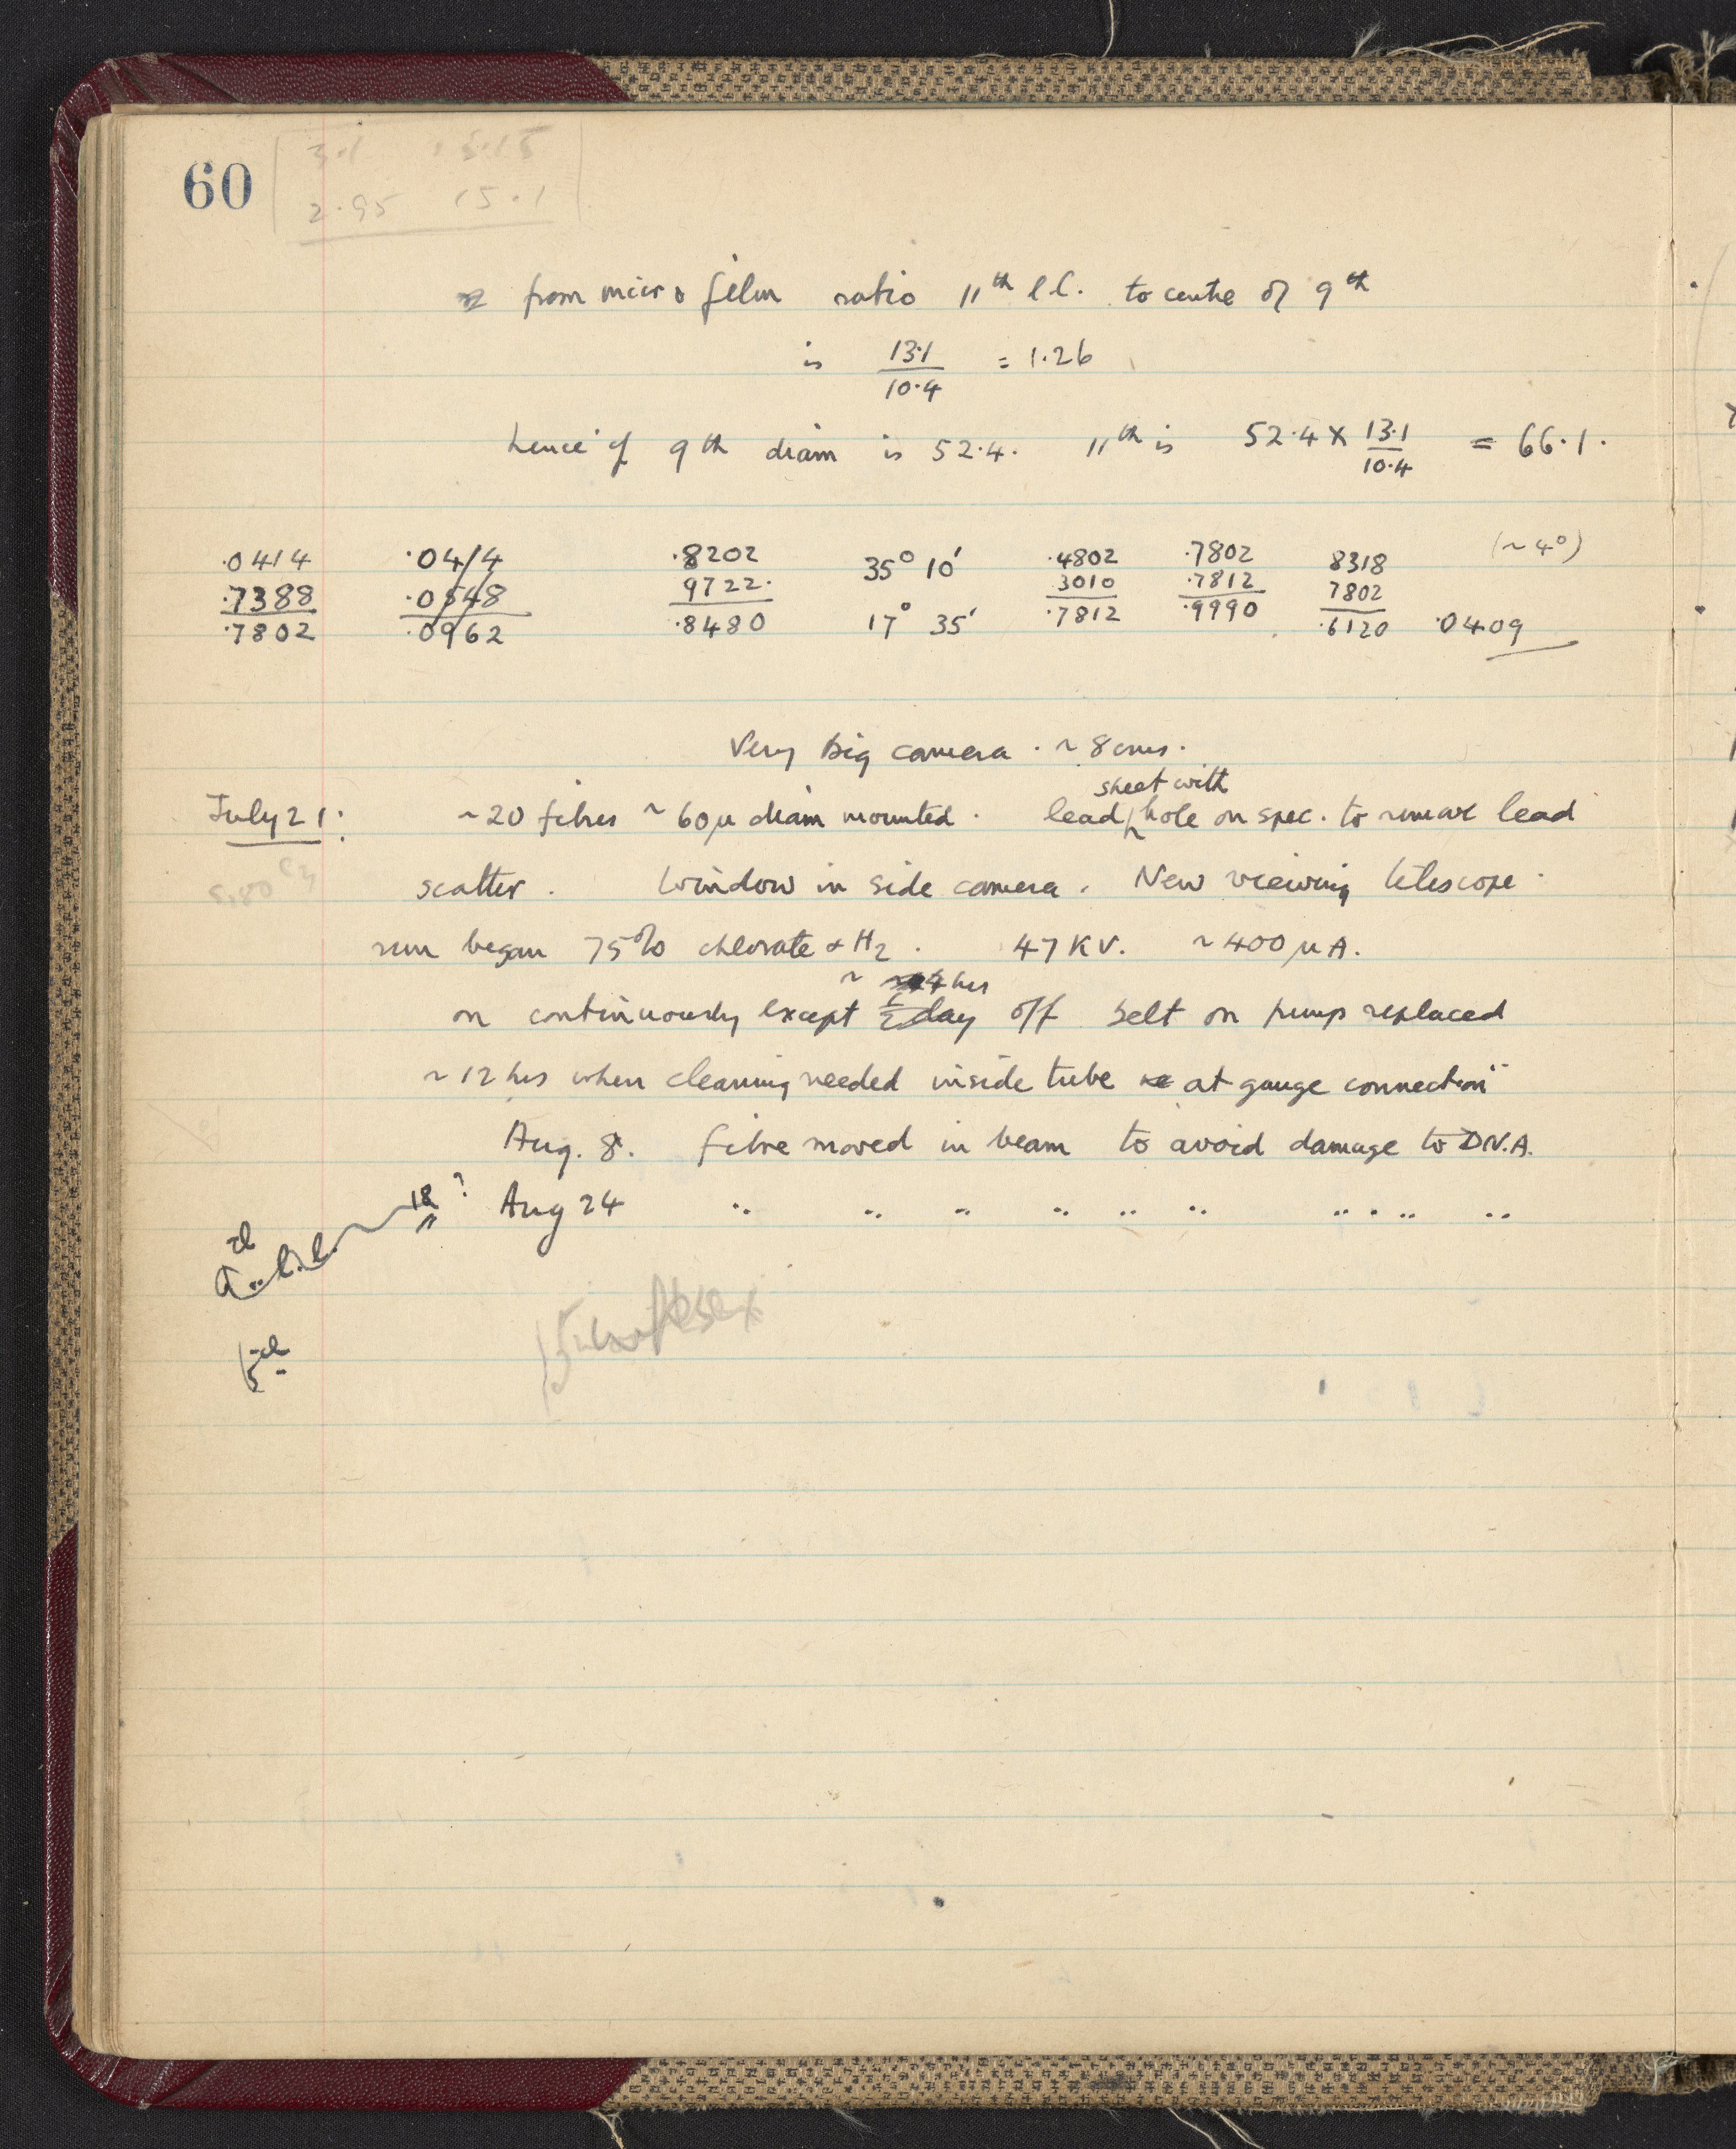 60
3.1 3.15
2.95 15.1
from micro film ratio 11th l.l. to centre of 9th
is 13.1/10.4 = 1.26
hence if 9th diam is 52.4. 11th is 52.4 × 13.1/10.4 = 66.1.
.0414 .0414 .8202 35° 10' .4802 .7802 8318 (~4°)
.7388 .0548 9722. 3010 .7812 7802
.7802 .0962 .8480 17° 35' .7812 .9990 .6120 .0409
Very big camera. ~ 8 cms.
sheet with
July 21: ~20 fibres ~ 60µ diam mounted. lead hole on spec. to remove lead
scatter. Window in side camera. New viewing telescope.
run began 75% chlorate & H2. 47 KV. ~400 µA.
~ 4 hrs
on continuously except ½ day off belt on pump replaced
~ 12 hrs when cleaning needed inside tube at gauge connection
Aug. 8. fibre moved in beam to avoid damage to D.N.A.
18 ? Aug 24 " " " " " " " " " "